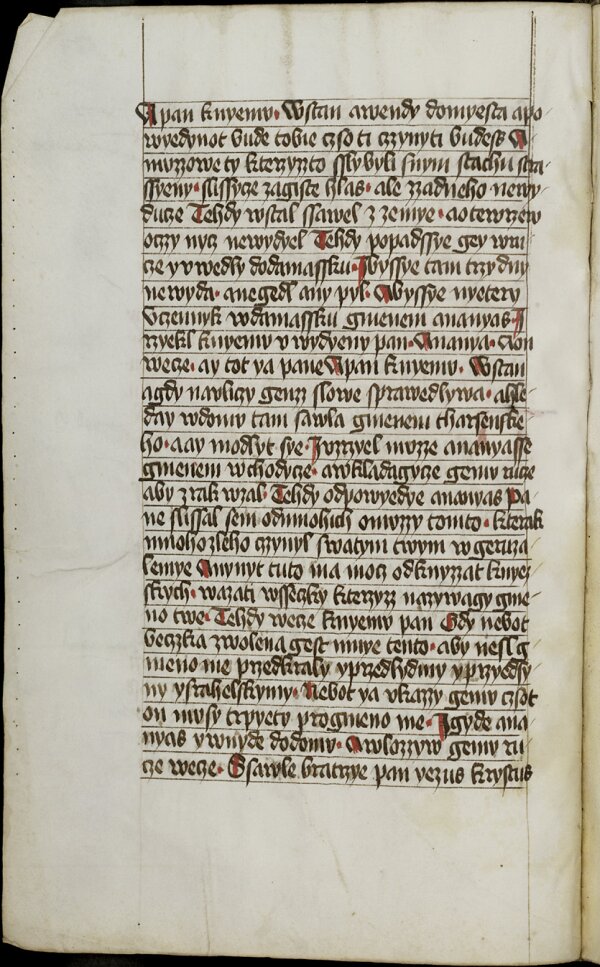 A pan knyemv· Wstan awendy domyesta apo-
wyedynot bude tobie czso ti czynyti budess A
muzzowe ty kterzyzto ssly byli snym stachu stra-
ssyeny· slissycze zagiste hlas· ale zzadneho newy-
ducze Tehdy wstal ssawel z zemye· aotewrzew
oczy nycz newydyel Tehdy popadssye gey wru-
cze y vwedly dodamassku· Ibyssye tam trzy dny
newyda· anegedl any pyl· Abyssye nyetery
vczennyk wdamassku gmenem ananyas· I
rzyekl knyemv v wydyeny pan· Ananya· Aon
wecze· ay tot ya pane Apan knyemv· Wstan
agdy navliczy genz slowe sprawedlywa· ahle-
day wdomu tam sawla gmenem tharsenske-
ho· aay modlyt sye· Ivzrzyel muzze ananyasse
gmenem wchodycze· awkladagycze gemv rucze
aby zrak wzal· Tehdy odpowyedye ananyas Pa-
ne slissal sem odmnohich omuzzy tomto· kterak
mnoho zleho czynyl swatym twym wgeruza-
lemye Anynyt tuto ma mocz odknyzzat knyez-
skych· wazati wsseczky kterzyz nazywagy gme-
no twe· Tehdy wecze knyemv pan Gdy nebot
beczka zwolena gest mnye tento· aby nesl g-
meno me przedkraly yprzedlydmy yprzyedsy-
ny ysrahelskymy· Nebot ya vkazzy gemv czsot
on musy trpyety progmeno me· Igyde ana-
nyas y wnyde dodomv· Awlozzyw gemv ru-
cze wecze· Ssawle bratrzye pan yezus krystus